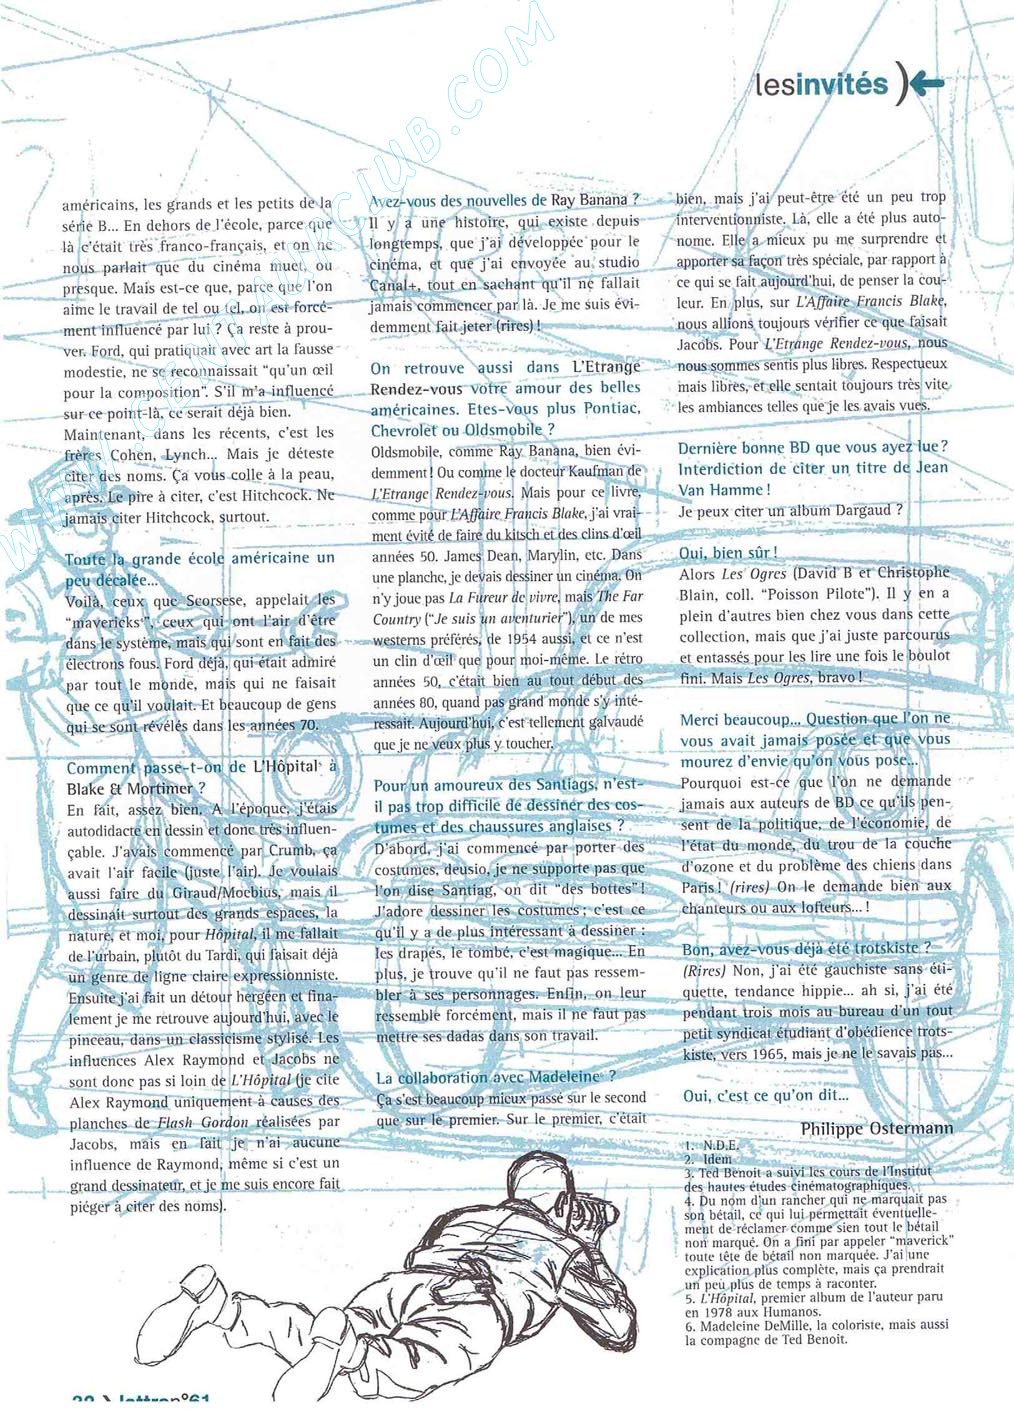 lesinvités
américains, les grands et les petits de la
série B... En dehors de l'école, parce que
là c'était très franco-français, et on ne
nous parlait que du cinéma muet, ou
presque. Mais est-ce que, parce que l'on
aime le travail de tel ou tel, on est forcé-
ment influencé par lui ? Ça reste à prou-
ver. Ford, qui pratiquait avec art la fausse
modestie, ne se reconnaissait "qu'un œil
pour la composition". S'il m'a influencé
sur ce point-là, ce serait déjà bien.
Maintenant, dans les récents, c'est les
frères Cohen, Lynch... Mais je déteste
citer des noms. Ça vous colle à la peau,
après. Le pire à citer, c'est Hitchcock. Ne
jamais citer Hitchcock, surtout.
Toute la grande école américaine un
peu décalée...
Voilà, ceux que Scorsese, appelait les
"mavericks⁴", ceux qui ont l'air d'être
dans le système, mais qui sont en fait des
électrons fous. Ford déjà, qui était admiré
par tout le monde, mais qui ne faisait
que ce qu'il voulait. Et beaucoup de gens
qui se sont révélés dans les années 70.
Comment passe-t-on de L'Hôpital⁵ à
Blake & Mortimer ?
En fait, assez bien. A l'époque, j'étais
autodidacte en dessin et donc très influen-
çable. J'avais commencé par Crumb, ça
avait l'air facile (juste l'air). Je voulais
aussi faire du Giraud/Moebius, mais il
dessinait surtout des grands espaces, la
nature, et moi, pour Hôpital, il me fallait
de l'urbain, plutôt du Tardi, qui faisait déjà
un genre de ligne claire expressionniste.
Ensuite j'ai fait un détour hergéen et fina-
lement je me retrouve aujourd'hui, avec le
pinceau, dans un classicisme stylisé. Les
influences Alex Raymond et Jacobs ne
sont donc pas si loin de L'Hôpital (je cite
Alex Raymond uniquement à causes des
planches de Flash Gordon réalisées par
Jacobs, mais en fait je n'ai aucune
influence de Raymond, même si c'est un
grand dessinateur, et je me suis encore fait
piéger à citer des noms).
Avez-vous des nouvelles de Ray Banana ?
Il y a une histoire, qui existe depuis
longtemps, que j'ai développée pour le
cinéma, et que j'ai envoyée au studio
Canal+, tout en sachant qu'il ne fallait
jamais commencer par là. Je me suis évi-
demment fait jeter (rires) !
On retrouve aussi dans L'Etrange
Rendez-vous votre amour des belles
américaines. Etes-vous plus Pontiac,
Chevrolet ou Oldsmobile ?
Oldsmobile, comme Ray Banana, bien évi-
demment ! Ou comme le docteur Kaufman de
L'Etrange Rendez-vous. Mais pour ce livre,
comme pour L'Affaire Francis Blake, j'ai vrai-
ment évité de faire du kitsch et des clins d'œil
années 50. James Dean, Marylin, etc. Dans
une planche, je devais dessiner un cinéma. On
n'y joue pas La Fureur de vivre, mais The Far
Country ("Je suis un aventurier"), un de mes
westerns préférés, de 1954 aussi, et ce n'est
un clin d'œil que pour moi-même. Le rétro
années 50, c'était bien au tout début des
années 80, quand pas grand monde s'y inté-
ressait. Aujourd'hui, c'est tellement galvaudé
que je ne veux plus y toucher.
Pour un amoureux des Santiags, n'est-
il pas trop difficile de dessiner des cos-
tumes et des chaussures anglaises ?
D'abord, j'ai commencé par porter des
costumes, deusio, je ne supporte pas que
l'on dise Santiag, on dit "des bottes" !
J'adore dessiner les costumes ; c'est ce
qu'il y a de plus intéressant à dessiner :
les drapés, le tombé, c'est magique... En
plus, je trouve qu'il ne faut pas ressem-
bler à ses personnages. Enfin, on leur
ressemble forcément, mais il ne faut pas
mettre ses dadas dans son travail.
La collaboration avec Madeleine⁶ ?
Ça s'est beaucoup mieux passé sur le second
que sur le premier. Sur le premier, c'était
bien, mais j'ai peut-être été un peu trop
interventionniste. Là, elle a été plus auto-
nome. Elle a mieux pu me surprendre et
apporter sa façon très spéciale, par rapport à
ce qui se fait aujourd'hui, de penser la cou-
leur. En plus, sur L'Affaire Francis Blake,
nous allions toujours vérifier ce que faisait
Jacobs. Pour L'Etrange Rendez-vous, nous
nous sommes sentis plus libres. Respectueux
mais libres, et elle sentait toujours très vite
les ambiances telles que je les avais vues.
Dernière bonne BD que vous ayez lue ?
Interdiction de citer un titre de Jean
Van Hamme !
Je peux citer un album Dargaud ?
Oui, bien sûr !
Alors Les Ogres (David B et Christophe
Blain, coll. "Poisson Pilote"). Il y en a
plein d'autres bien chez vous dans cette
collection, mais que j'ai juste parcourus
et entassés pour les lire une fois le boulot
fini. Mais Les Ogres, bravo !
Merci beaucoup... Question que l'on ne
vous avait jamais posée et que vous
mourez d'envie qu'on vous pose...
Pourquoi est-ce que l'on ne demande
jamais aux auteurs de BD ce qu'ils pen-
sent de la politique, de l'économie, de
l'état du monde, du trou de la couche
d'ozone et du problème des chiens dans
Paris ! (rires) On le demande bien aux
chanteurs ou aux lofteurs... !
Bon, avez-vous déjà été trotskiste ?
(Rires) Non, j'ai été gauchiste sans éti-
quette, tendance hippie... ah si, j'ai été
pendant trois mois au bureau d'un tout
petit syndicat étudiant d'obédience trots-
kiste, vers 1965, mais je ne le savais pas...
Oui, c'est ce qu'on dit...
Philippe Ostermann
1. N.D.E.
2. Idem
3. Ted Benoit a suivi les cours de l'Institut
des hautes études cinématographiques.
4. Du nom d'un rancher qui ne marquait pas
son bétail, ce qui lui permettait éventuelle-
ment de réclamer comme sien tout le bétail
non marqué. On a fini par appeler "maverick"
toute tête de bétail non marquée. J'ai une
explication plus complète, mais ça prendrait
un peu plus de temps à raconter.
5. L'Hôpital, premier album de l'auteur paru
en 1978 aux Humanos.
6. Madeleine DeMille, la coloriste, mais aussi
la compagne de Ted Benoit.